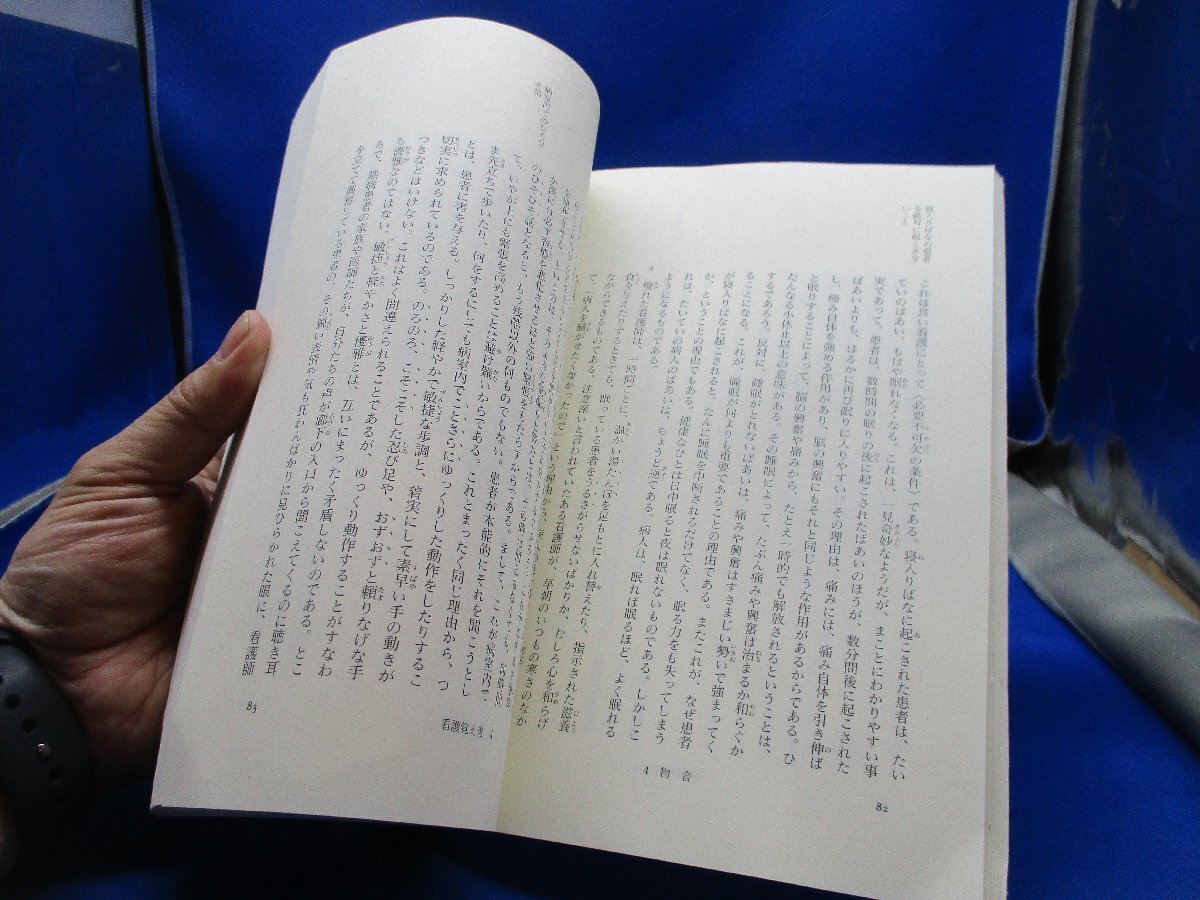 寝入りばなの患者
を絶対に起こさな
いこと
これは良い看護にとって〈必要不可欠の条件〉である。寝入りばなに起こされた患者は、たい
ていのばあい、もはや眠れなくなる。これは、一見奇妙なようだが、まことにわかりやすい事
実であって、患者は、数時間の眠りの後に起こされたばあいのほうが、数分間後に起こされた
ばあいよりも、はるかに再び眠りに入りやすい。その理由は、痛みには、痛み自体を引き伸ば
し、痛み自体を強める作用があり、脳の興奮にもそれと同じような作用があるからである。ひ
と眠りすることによって、脳の興奮や痛みから、たとえ一時的でも解放されるということは、
たんなる小休止以上の意味がある。その睡眠によって、たぶん痛みや興奮は治まるか和らぐか
するであろう。反対に、睡眠がとれないばあいは、痛みや興奮はすさまじい勢いで強まってく
ることになる。これが、睡眠が何よりも重要であることの理由である。またこれが、なぜ患者
が寝入りばなに起こされると、たんに睡眠を中断されるだけでなく、眠る力をも失ってしまう
か、ということの理由でもある。健康なひとは日中眠ると夜は眠れないものである。しかしこ
れは、たいていの病人のばあいは、ちょうど逆である。病人は、眠れば眠るほど、よく眠れる
ようになるものである。
優れた看護師は、一時間ごとに、温かい湯たんぽを足もとに入れ替えたり、指示された滋養
食を与えたりするときでも、眠っている患者をうるさがらせないばかりか、むしろ心を和らげ
ながらできるものである。注意深いと言われていたある看護師が、早朝のいつもの寒さのなか
て、「病人を騒がせたくなかったので」という理由から、
4 物音
82
て、いやが上にも緊張を高めることは避け難いからである。
ま先立ちで歩いたり、何をするにしても病室内でことさらにゆっくりした動作をしたりするこ
とは、患者に害を与える。しっかりした軽やかで敏捷な歩調と、着実にして素早い手の動きが
切実に求められているのである。のろのろ、こそこそした忍び足や、おずおずと頼りなげな手
つきなどはいけない。これはよく間違えられることであるが、ゆっくり動作することがすなわ
ち優雅なのではない。敏捷と軽やかさと優雅とは、互いにまったく矛盾しないのである。とこ
ろで、熱病患者の家族や医師たちが、自分たちの声が廊下の入口から聞こえてくるのに聴き耳
を立てて興奮している患者の、その鋭い表情や気も狂わんばかりに見ひらかれた眼に、看護師
看護覚え書
83